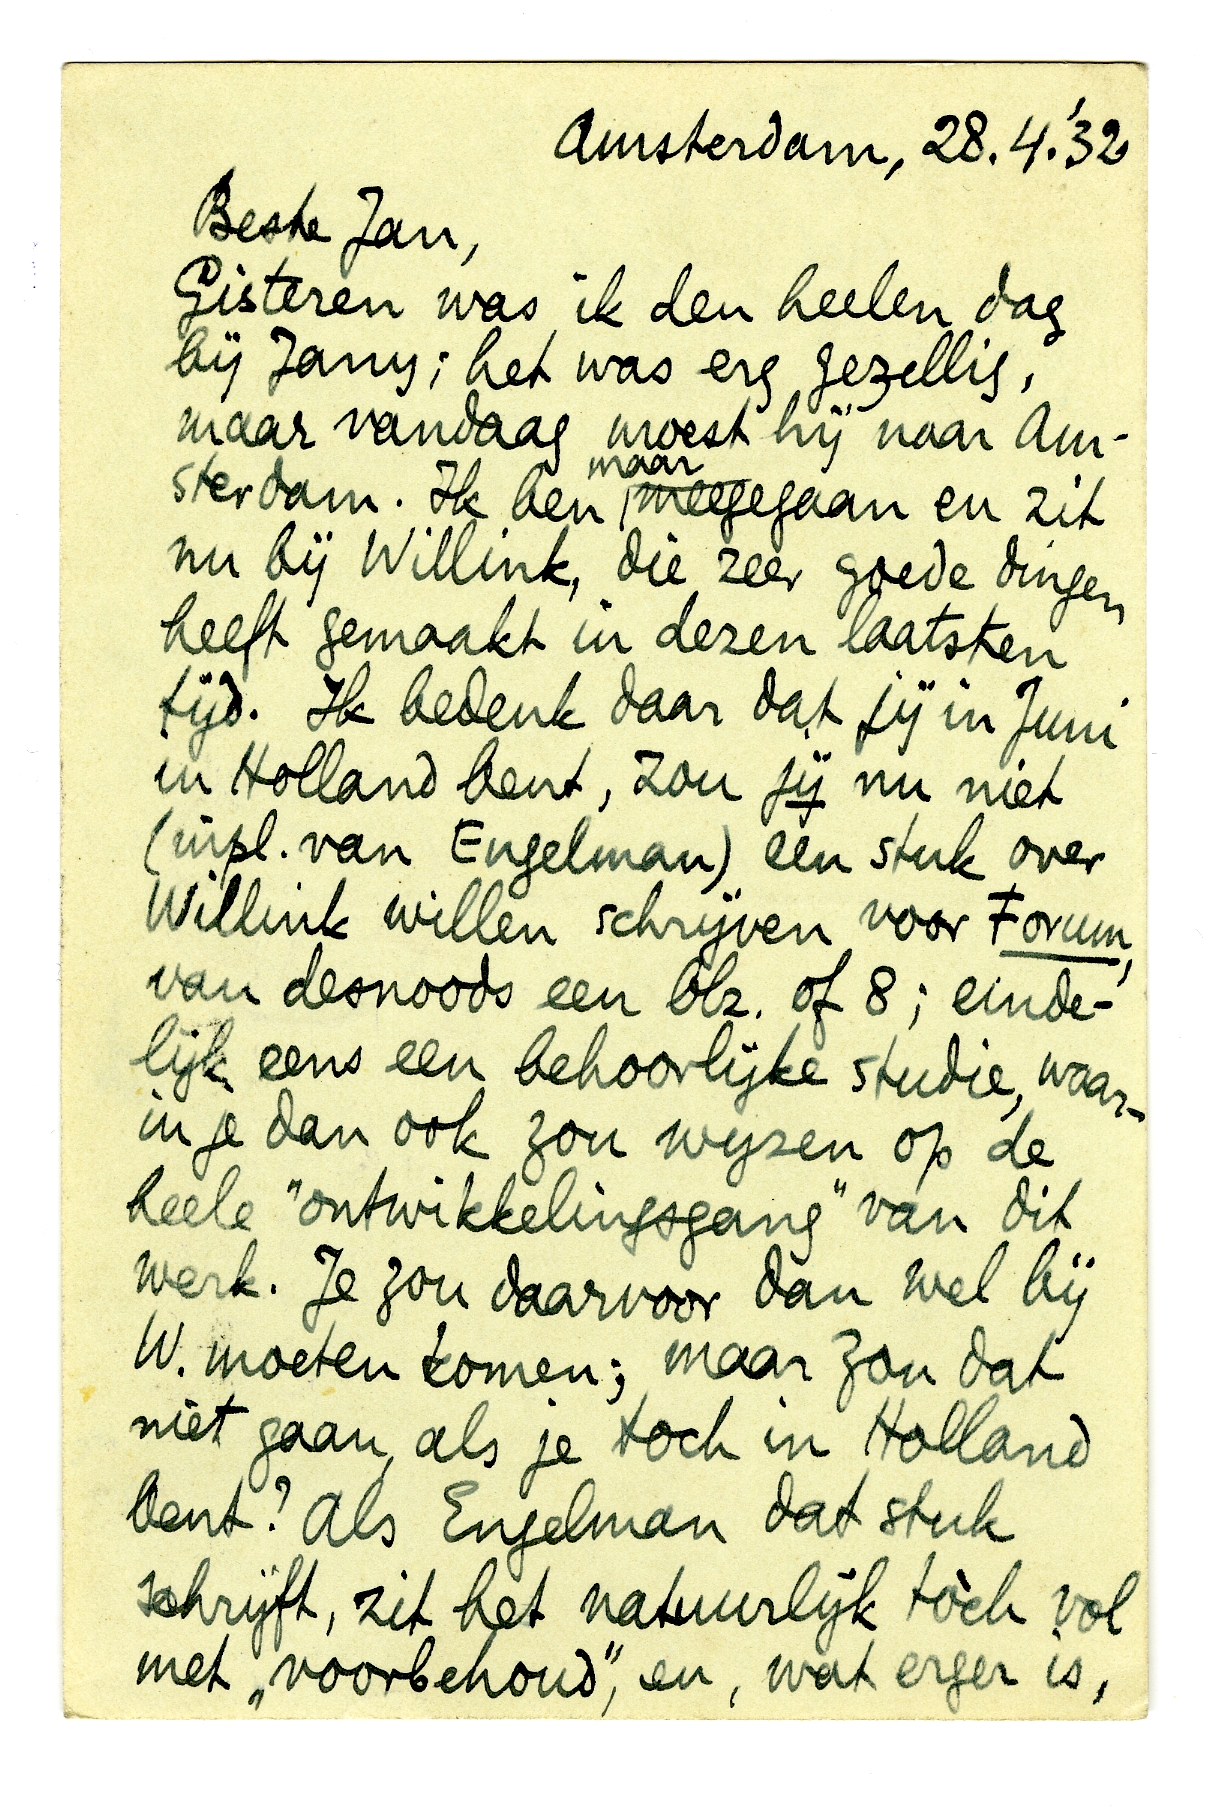 Amsterdam, 28.4.'32
Beste Jan,
Gisteren was ik den heelen dag
bij Jany; het was erg gezellig,
maar vandaag moest hij naar Am-
sterdam. Ik ben maar meegegaan en zit
nu bij Willink, die zeer goede dingen
heeft gemaakt in dezen laatsten
tijd. Ik bedenk daar dat jij in Juni
in Holland bent, zou jij nu niet
(inpl. van Engelman) een stuk over
Willink willen schrijven voor Forum,
van desnoods een blz. of 8; einde-
lijk eens een behoorlijke studie, waar-
in je dan ook zou wijzen op de
heele "ontwikkelingsgang" van dit
werk. Je zou daarvoor dan wel bij
W. moeten komen; maar zou dat
niet gaan, als je toch in Holland
bent? Als Engelman dat stuk
schrijft, zit het natuurlijk tòch vol
met „voorbehoud", en, wat erger is,